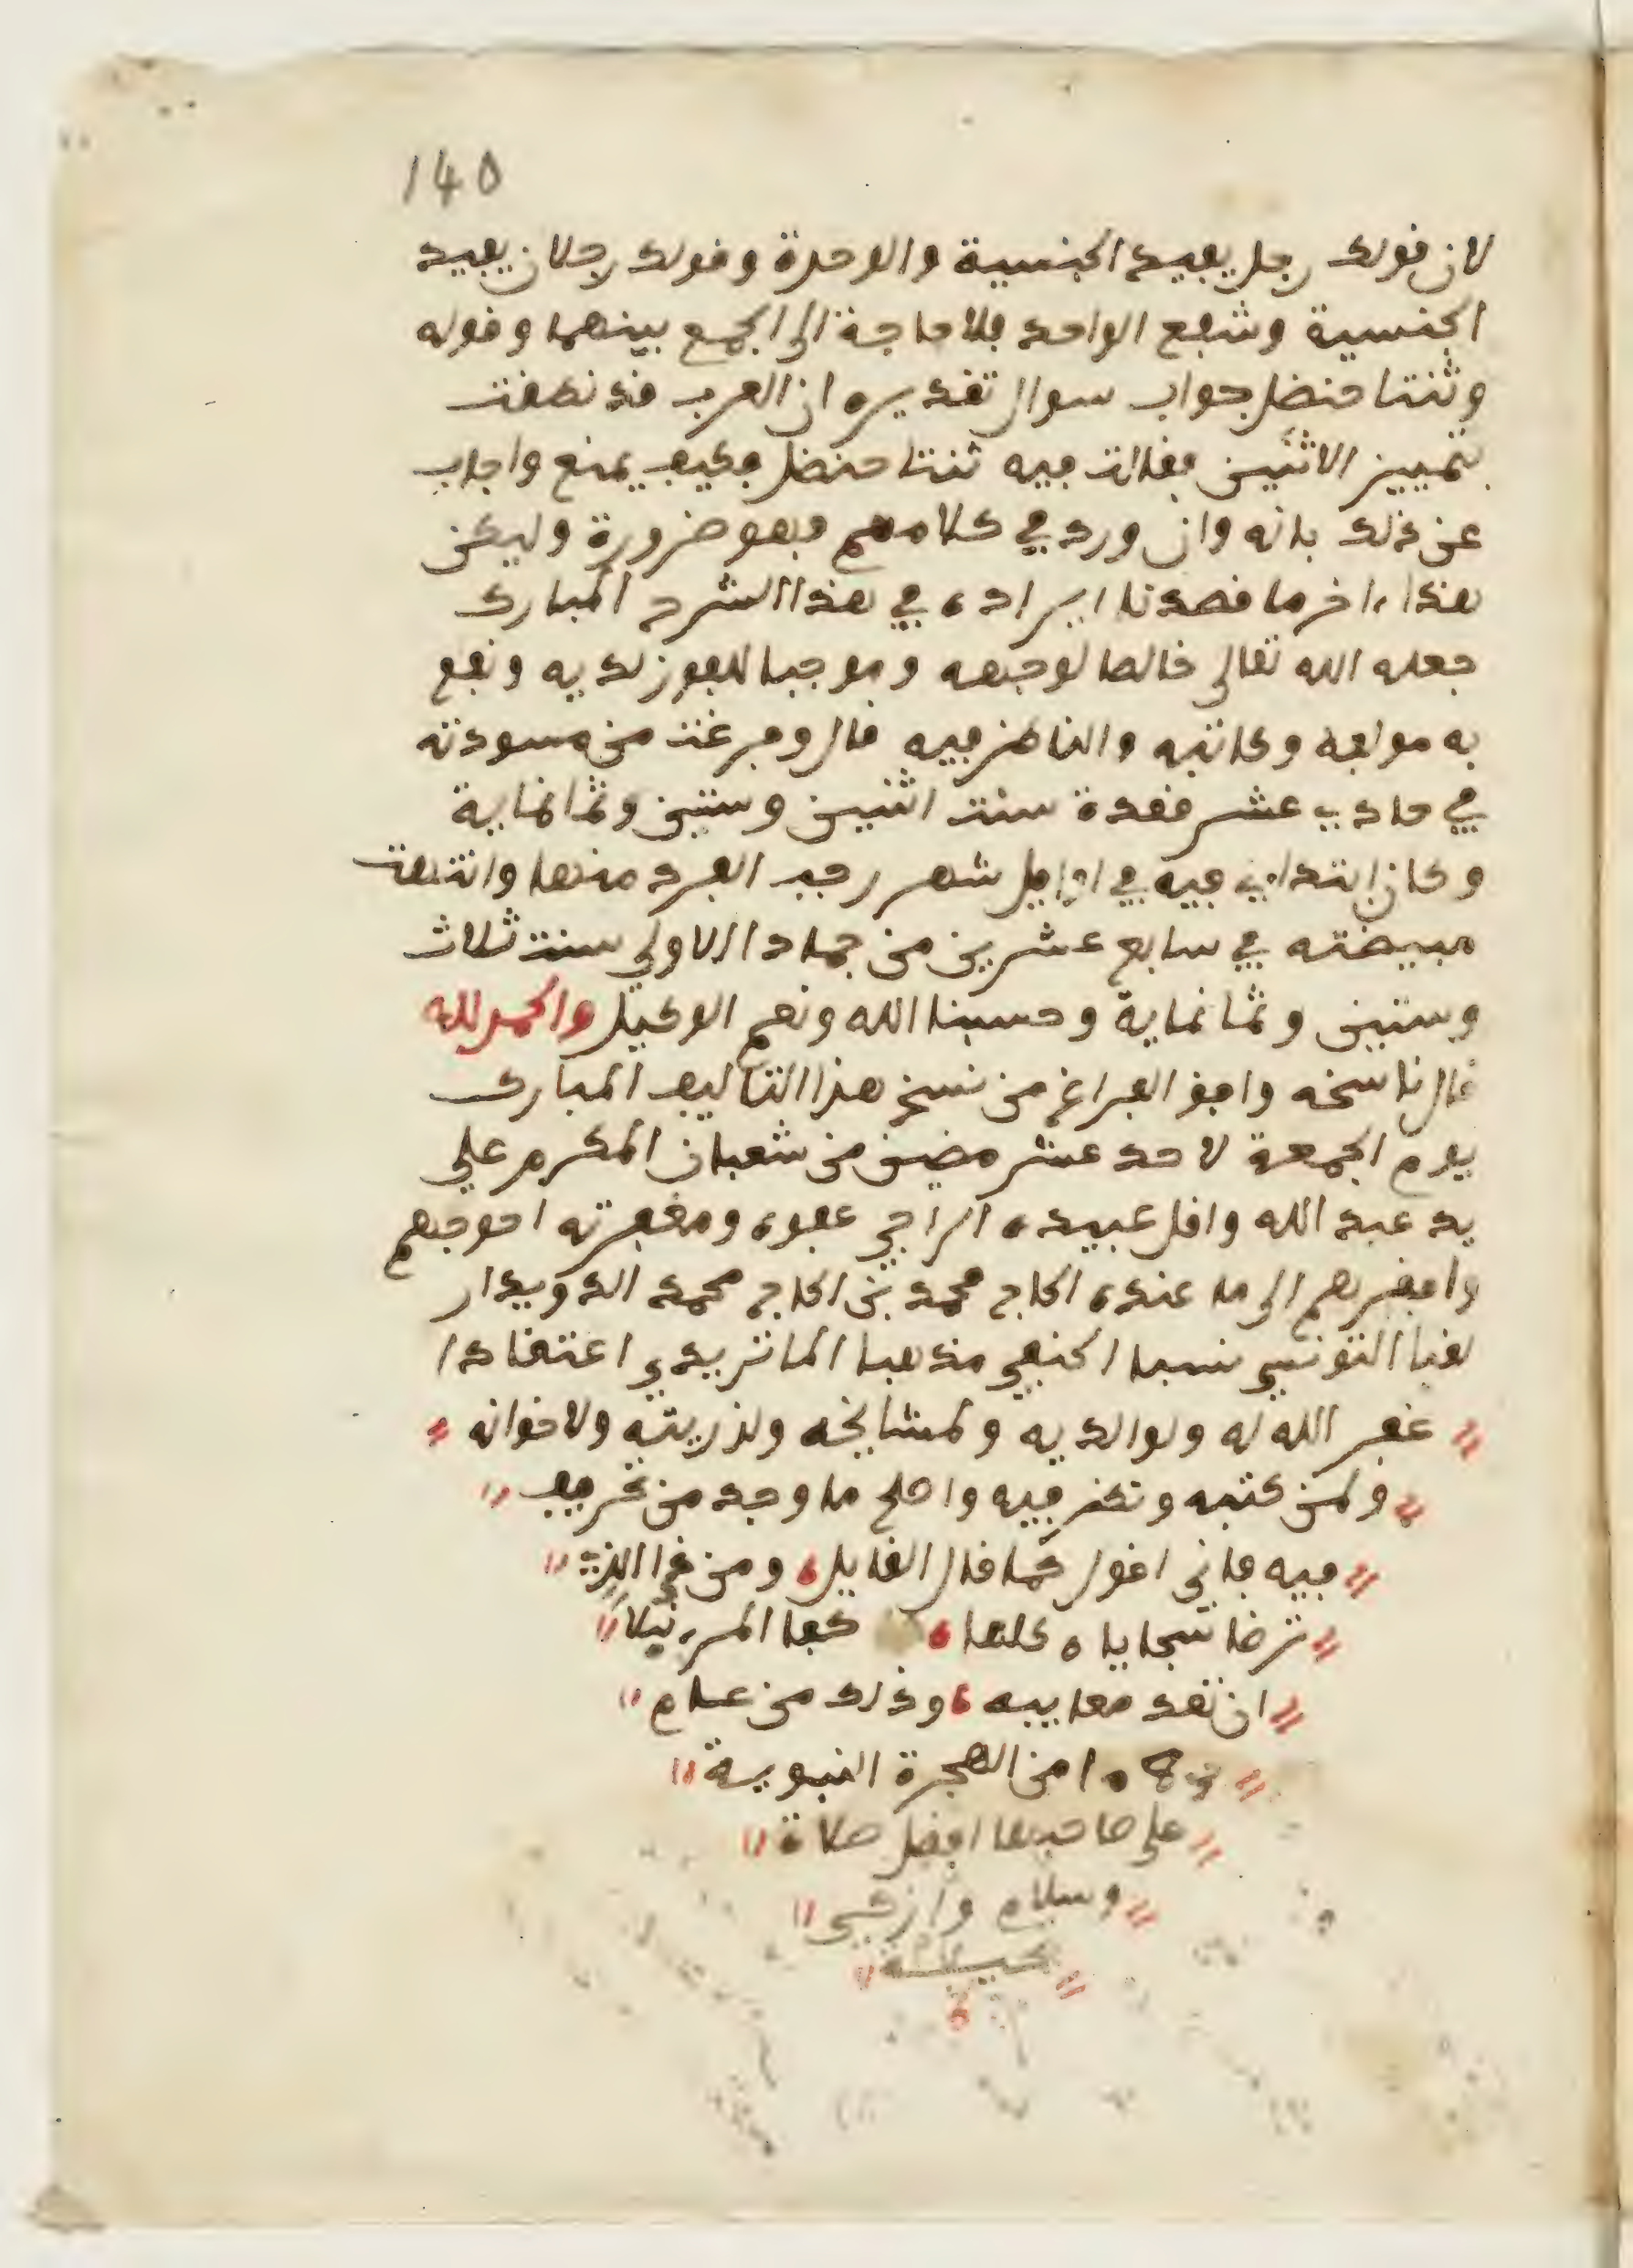 140
لان قولك رجل يفيد الجنسية والوحدة وقولك رجلان يفيد
الجنسية وشفع الواحد فلا حاجة الى الجمع بينهما وقوله
وثنتا حنضل جواب سوال تقديره ان العرب قد نطقت
بتمييز الاثنين فقالت فيه ثنتا حنضل فكيف يمنع واجاب
عن ذلك بانه وان ورد في كلامهم فهو ضرورة وليكن
هذا ءاخر ما قصدنا ايراده في هذا الشرح المبارك
جعله الله تعالى خالصا لوجهه وموجبا للفوز لديه ونفع
به مولفه وكاتبه والناظر فيه قال وفرغت من مسودته
في حادي عشر قعدة سنت اثنين وستين وثمانماية
وكان ابتداءي فيه في اوايل شهر رجب الفرد منها وانتهت
مبيضته في سابع عشرين من جمادا الاولى سنت ثلاث
وستين وثمانماية وحسبنا الله ونعم الوكيل والحمد لله
قال ناسخه وافق الفراغ من نسخ هذا التاليف المبارك
يوم الجمعة لاحد عشر مضين من شعبان المكرم على
يد عبد الله واقل عبيده الراجي عفوه ومغفرته احوجهم
وافقرهم الى ما عنده الحاج محمد بن الحاج محمد الدويدار
لقبا التونسي نسبا الحنفي مذهبا الماتريدي اعتقادا
غفر الله له ولوالديه ولمشايخه ولذريته ولاخوانه
ولمن كتبه ونظر فيه واصلح ما وجد من تحريف
فيه فاني اقول كما قال القايل ومن ذا الذي
ترضا سجاياه كلها كفا المرء نبلا
ان تعد معايبه وذلك من عام
من الهجرة النبوية
على صاحبها افضل صلاة
وسلام وازكى
تحية